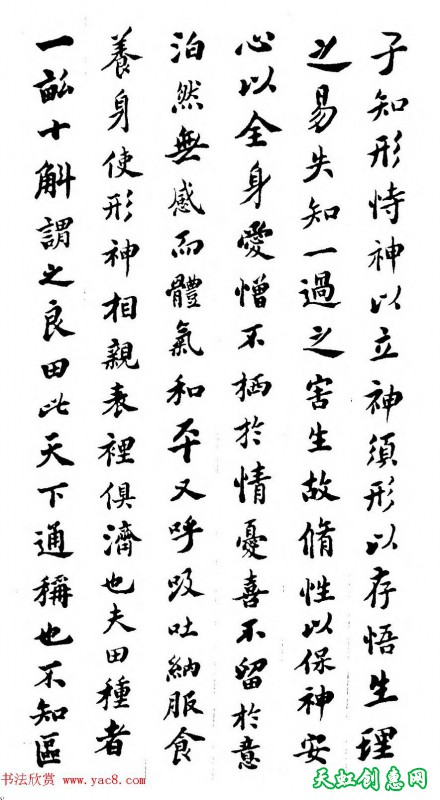 子知形恃神以立神須形以存悟生理
之易失知一過之害生故脩性以保神安
心以全身愛憎不栖於情憂喜不留於意
泊然無感而體氣和平又呼吸吐納服食
養身使形神相親表裡俱濟也夫田種者
一畝十斛謂之良田此天下通稱也不知區
书法欣赏 www.yac8.com
天虹创意网